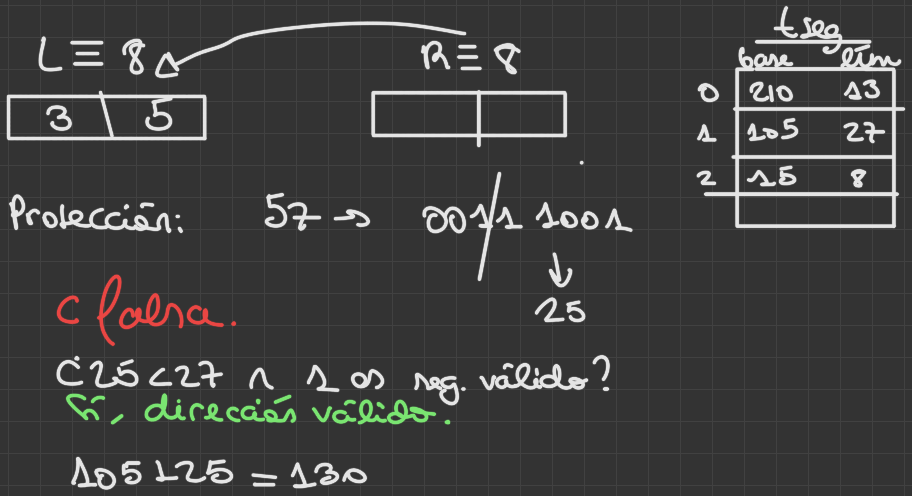 tseg
L ≡ 8 R ≡ 8
base lím
3 5
0 210 13
1 105 27
2 15 8
Protección: 57 → 0011 1001
25
C falsa.
¿25<27 ∩ 1 es seg. válido?
Sí, dirección válido.
105+25 = 130